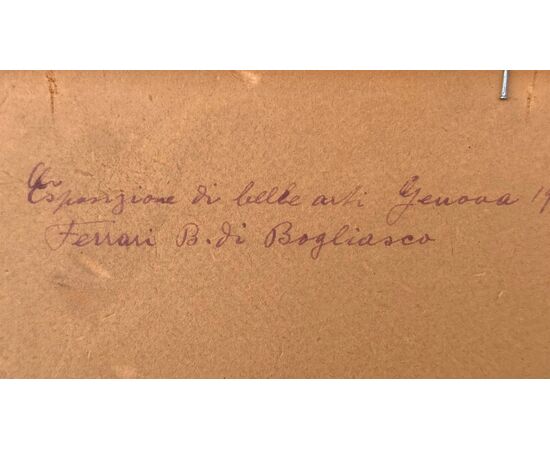 Esposizione di belle arti Genova 19
Ferrari B. di Bogliasco